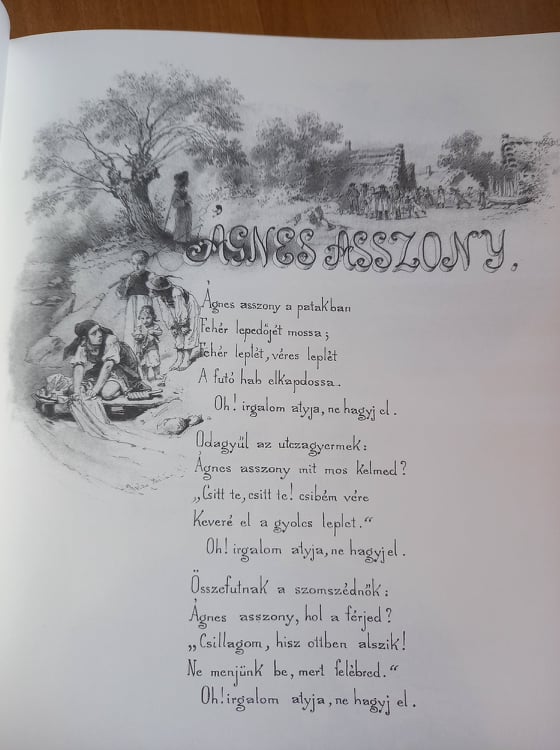 ÁGNES ASSZONY.
Ágnes asszony a patakban
Fehér lepedőjét mossa;
Fehér leplét, véres leplét
A futó hab elkapdossa.
Oh! irgalom atyja, ne hagyj el.
Odagyűl az utczagyermek:
Ágnes asszony mit mos kelmed?
„Csitt te, csitt te! csibém vére
Keveré el a gyolcs leplet.“
Oh! irgalom atyja, ne hagyj el.
Összefutnak a szomszédnők:
Ágnes asszony, hol a férjed?
„Csillagom, hisz ottben alszik!
Ne menjünk be, mert felébred.“
Oh! irgalom atyja, ne hagyj el.